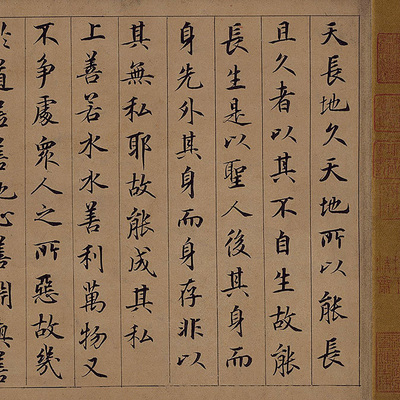 天長地久天地所以能長
且久者以其不自生故能
長生是以聖人後其身而
身先外其身而身存非以
其無私耶故能成其私
上善若水水善利萬物又
不爭處眾人之所惡故幾
於道居善地心善淵與善